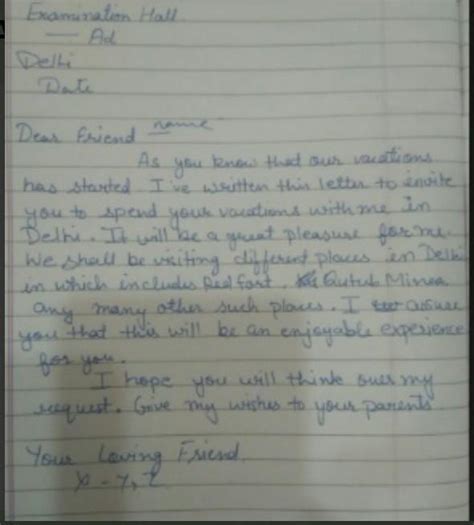 Examination Hall
— Ad
Delhi
Date
Dear Friend name
As you know that our vacations
has started I've written this letter to invite
you to spend your vacations with me in
Delhi. It will be a great pleasure for me.
We shall be visiting different places in Delhi
in which includes Red fort, Qutub Minar
any many other such places. I assure
you that this will be an enjoyable experience
for you.
I hope you will think over my
request. Give my wishes to your parents
Your Loving Friend
X - Y, Z